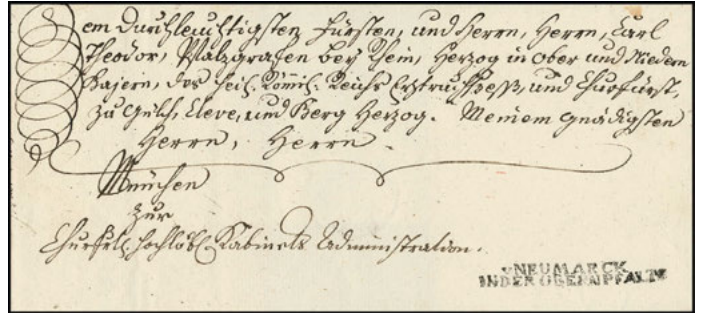 em Durchleuchtigsten Fürsten, und Herrn, Herrn, Carl
Theodor, Pfalzgrafen bey Rhein, Herzog in Ober und Niedern
Bajern, des heil. Römisch. Reichs Erztruchseß, und Churfürst,
zu Gülch, Cleve, und Berg Herzog. Meinem gnädigsten
Herrn, Herrn.
München
Zur
Churfrtl. hochlöbl. Kabinets Administration.
v NEUMARCK
IN DER OBERN PFALTZ